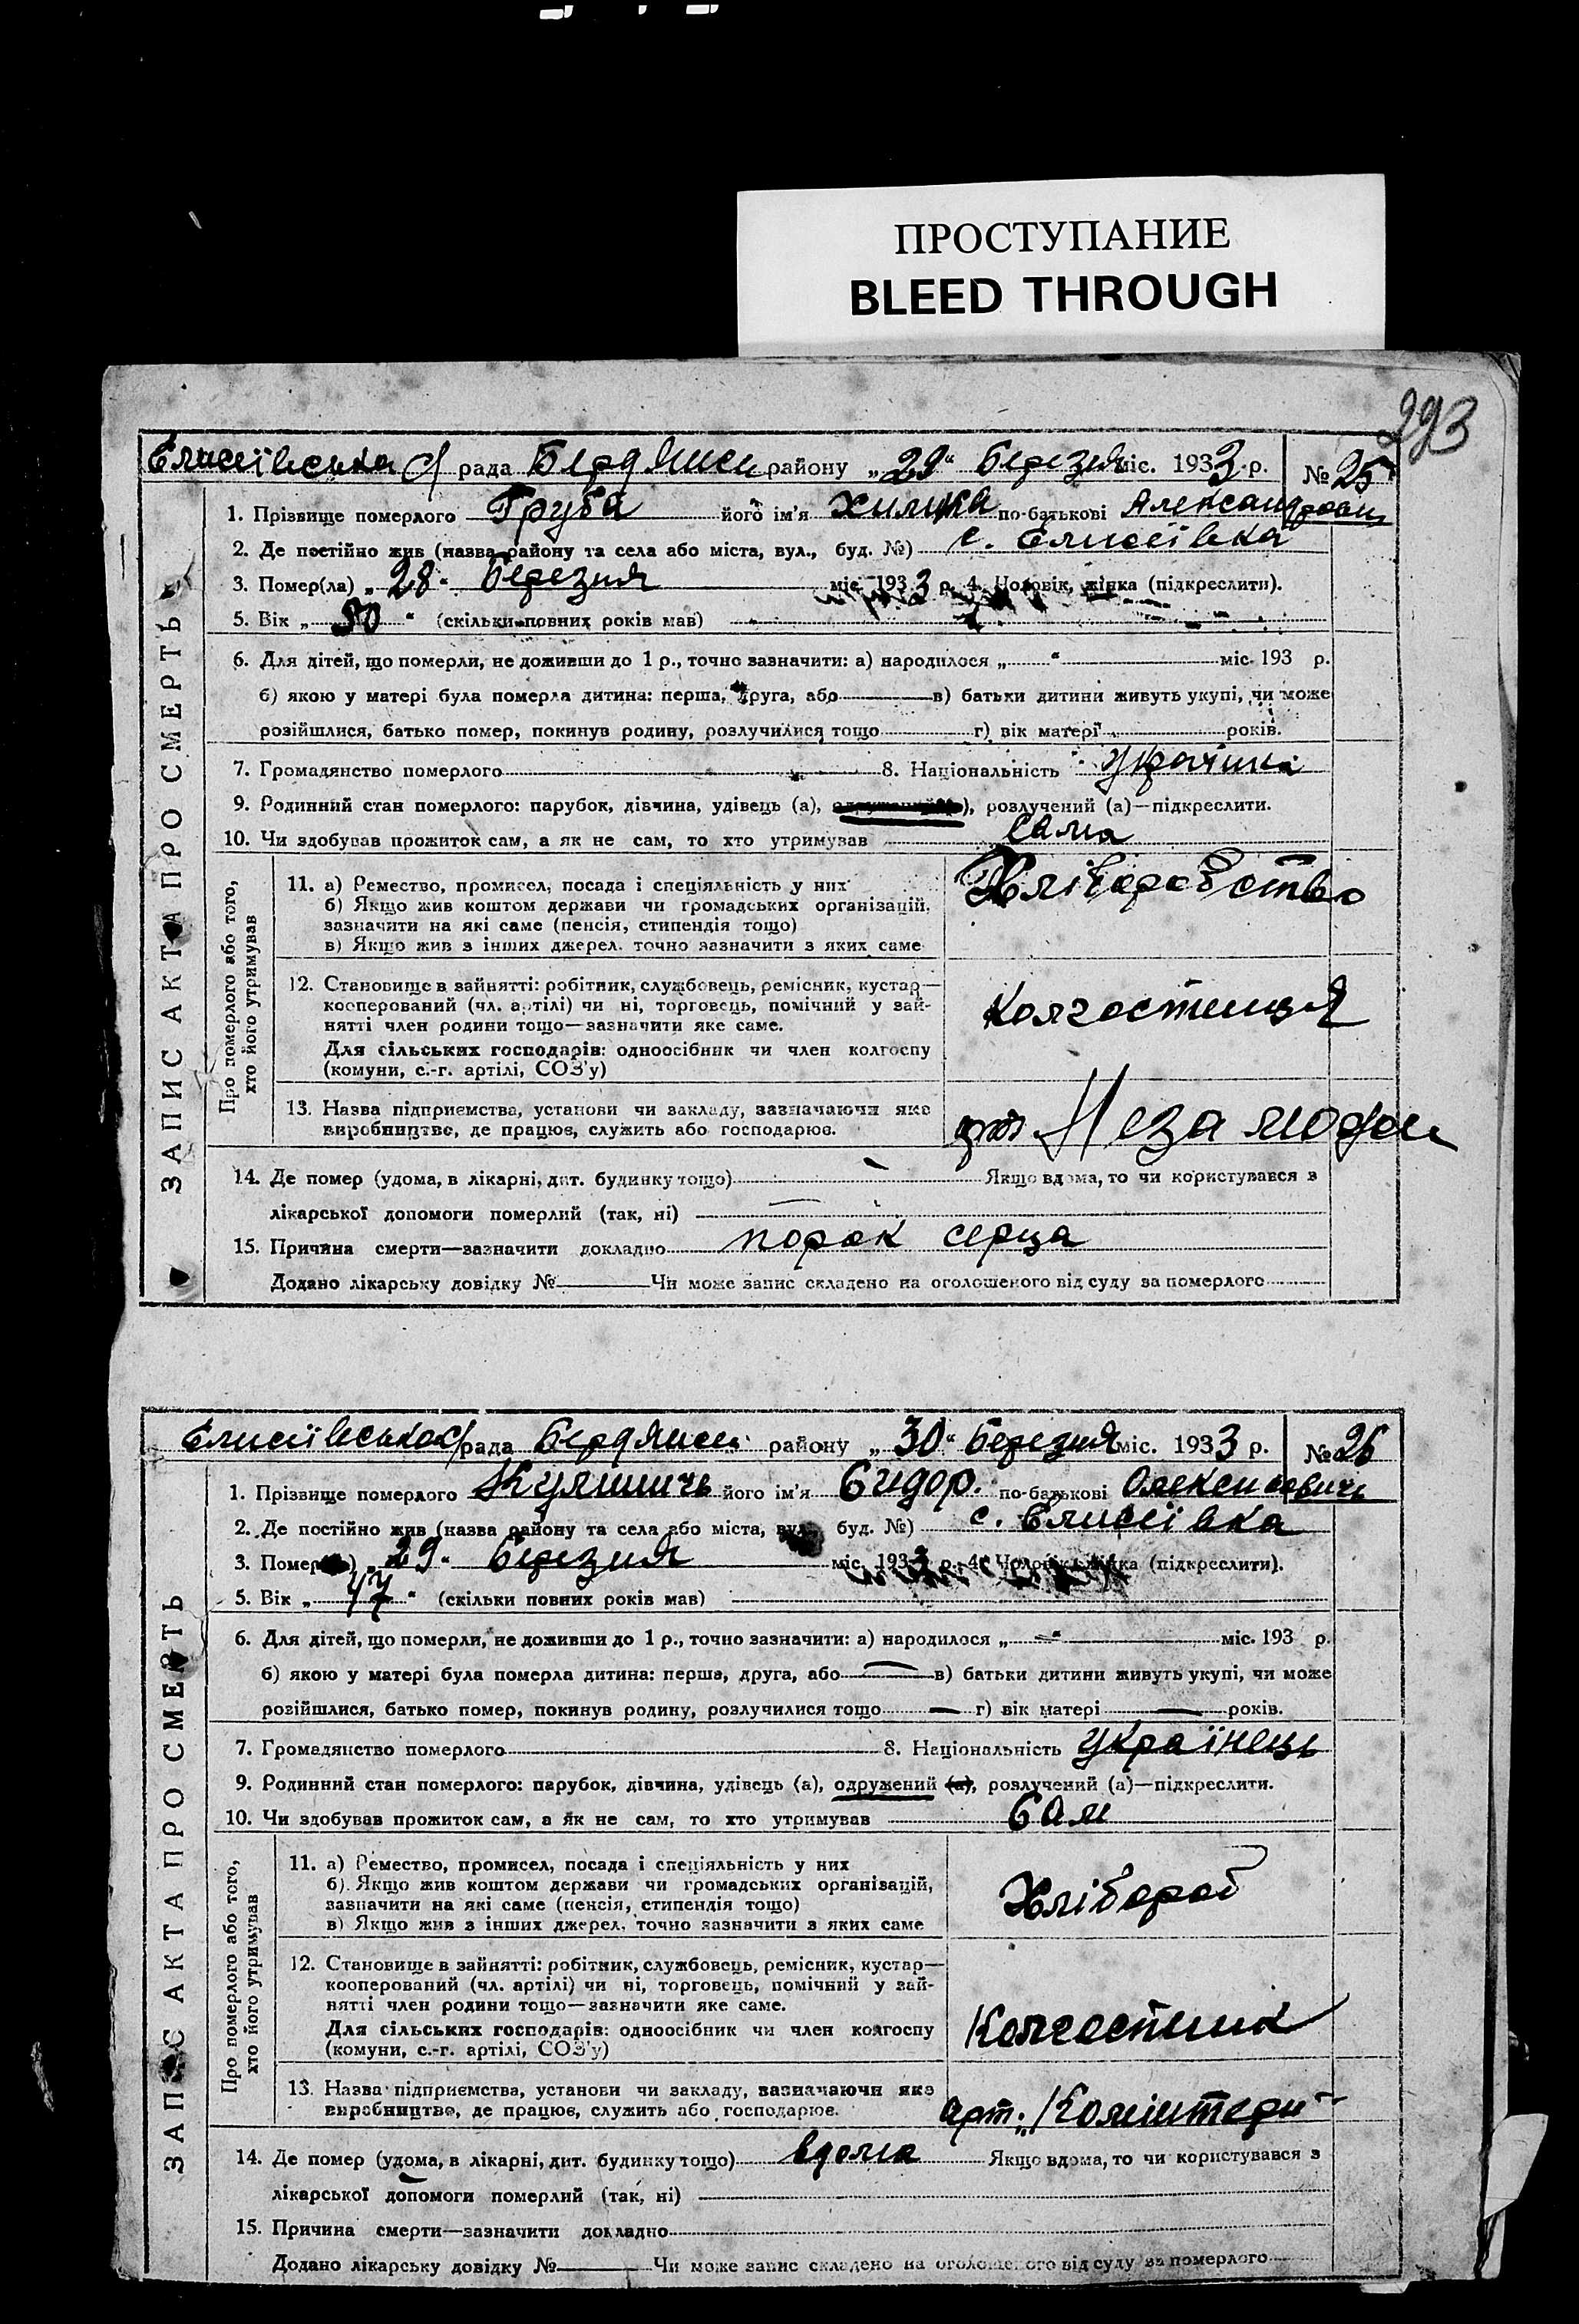 ПРОСТУПАНИЕ
BLEED THROUGH
293
Єлисеївська с/ рада Бердянськ району „29“ Березня міс. 1933 р. № 25
1. Прізвище померлого Груба його ім'я по-батькові Александровн
2. Де постійно жив (назва району та села або міста, вул., буд. №) с. Єлисеївка
3. Помер(ла) „28“ Березня міс. 1933 р. 4. Чоловік, жінка (підкреслити).
5. Вік „50“ (скільки повних років мав)
6. Для дітей, що померли, не доживши до 1 р., точно зазначити: а) народилося „ “ міс. 193 р.
б) якою у матері була померла дитина: перша, друга, або в) батьки дитини живуть укупі, чи може
розійшлися, батько помер, покинув родину, розлучилися тощо г) вік матері років.
7. Громадянство померлого 8. Національність Українка
9. Родинний стан померлого: парубок, дівчина, удівець (а), одружений (а), розлучений (а)—підкреслити.
10. Чи здобував прожиток сам, а як не сам, то хто утримував сама
ЗАПИС АКТА ПРО СМЕРТЬ
Про померлого або того,
хто його утримував
11. а) Ремество, промисел, посада і спеціяльність у них
б) Якщо жив коштом держави чи громадських організацій,
зазначити на які саме (пенсія, стипендія тощо)
в) Якщо жив з інших джерел, точно зазначити з яких саме
Хліборобство
12. Становище в зайнятті: робітник, службовець, ремісник, кустар—
кооперований (чл. артілі) чи ні, торговець, помічний у зай-
нятті член родини тощо—зазначити яке саме.
Для сільських господарів: одноосібник чи член колгоспу
(комуни, с.-г. артілі, СОЗ'у)
Колгостниця
13. Назва підприємства, установи чи закладу, зазначаючи яке
виробництво, де працює, служить або господарює.
арт. Незаможн
14. Де помер (удома, в лікарні, дит. будинку тощо) Якщо вдома, то чи користувався з
лікарської допомоги померлий (так, ні)
15. Причина смерти—зазначити докладно порок серца
Додано лікарську довідку № Чи може запис складено на оголошеного від суду за померлого
Єлисеївська с/ рада Бердянськ району „30“ Березня міс. 1933 р. № 26
1. Прізвище померлого його ім'я Сидор. по-батькові Олексиєвичь
2. Де постійно жив (назва району та села або міста, вул., буд. №) с. Єлисеївка
3. Помер(ла) „29“ Березня міс. 1933 р. 4. Чоловік, жінка (підкреслити).
5. Вік „47“ (скільки повних років мав)
6. Для дітей, що померли, не доживши до 1 р., точно зазначити: а) народилося „—“ міс. 193 р.
б) якою у матері була померла дитина: перша, друга, або — в) батьки дитини живуть укупі, чи може
розійшлися, батько помер, покинув родину, розлучилися тощо — г) вік матері — років.
7. Громадянство померлого 8. Національність Українець
9. Родинний стан померлого: парубок, дівчина, удівець (а), одружений (а), розлучений (а)—підкреслити.
10. Чи здобував прожиток сам, а як не сам, то хто утримував Сам
ЗАПИС АКТА ПРО СМЕРТЬ
Про померлого або того,
хто його утримував
11. а) Ремество, промисел, посада і спеціяльність у них
б) Якщо жив коштом держави чи громадських організацій,
зазначити на які саме (пенсія, стипендія тощо)
в) Якщо жив з інших джерел, точно зазначити з яких саме
Хлібороб
12. Становище в зайнятті: робітник, службовець, ремісник, кустар—
кооперований (чл. артілі) чи ні, торговець, помічний у зай-
нятті член родини тощо—зазначити яке саме.
Для сільських господарів: одноосібник чи член колгоспу
(комуни, с.-г. артілі, СОЗ'у)
Колгостник
13. Назва підприємства, установи чи закладу, зазначаючи яке
виробництво, де працює, служить або господарює.
арт. „Комінтерн“
14. Де помер (удома, в лікарні, дит. будинку тощо) вдома Якщо вдома, то чи користувався з
лікарської допомоги померлий (так, ні)
15. Причина смерти—зазначити докладно
Додано лікарську довідку № Чи може запис складено на оголошеного від суду за померлого